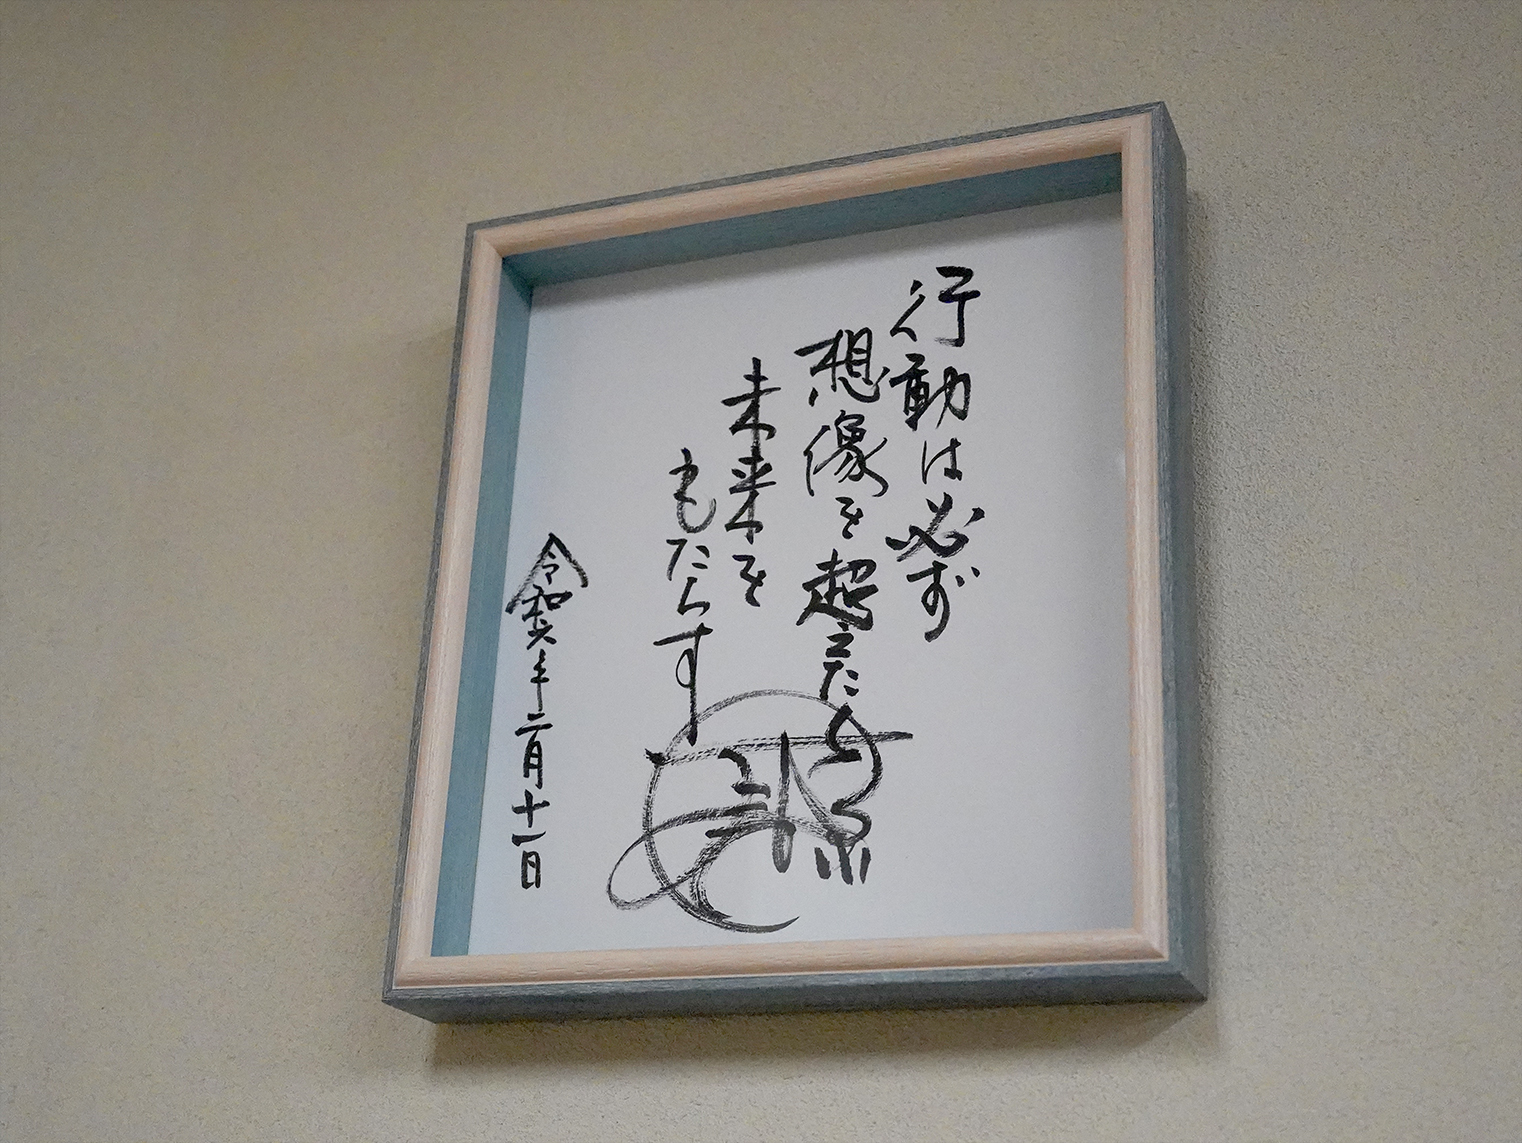 行動は必ず
想像を超えた
未来を
もたらす
令和六年二月十一日